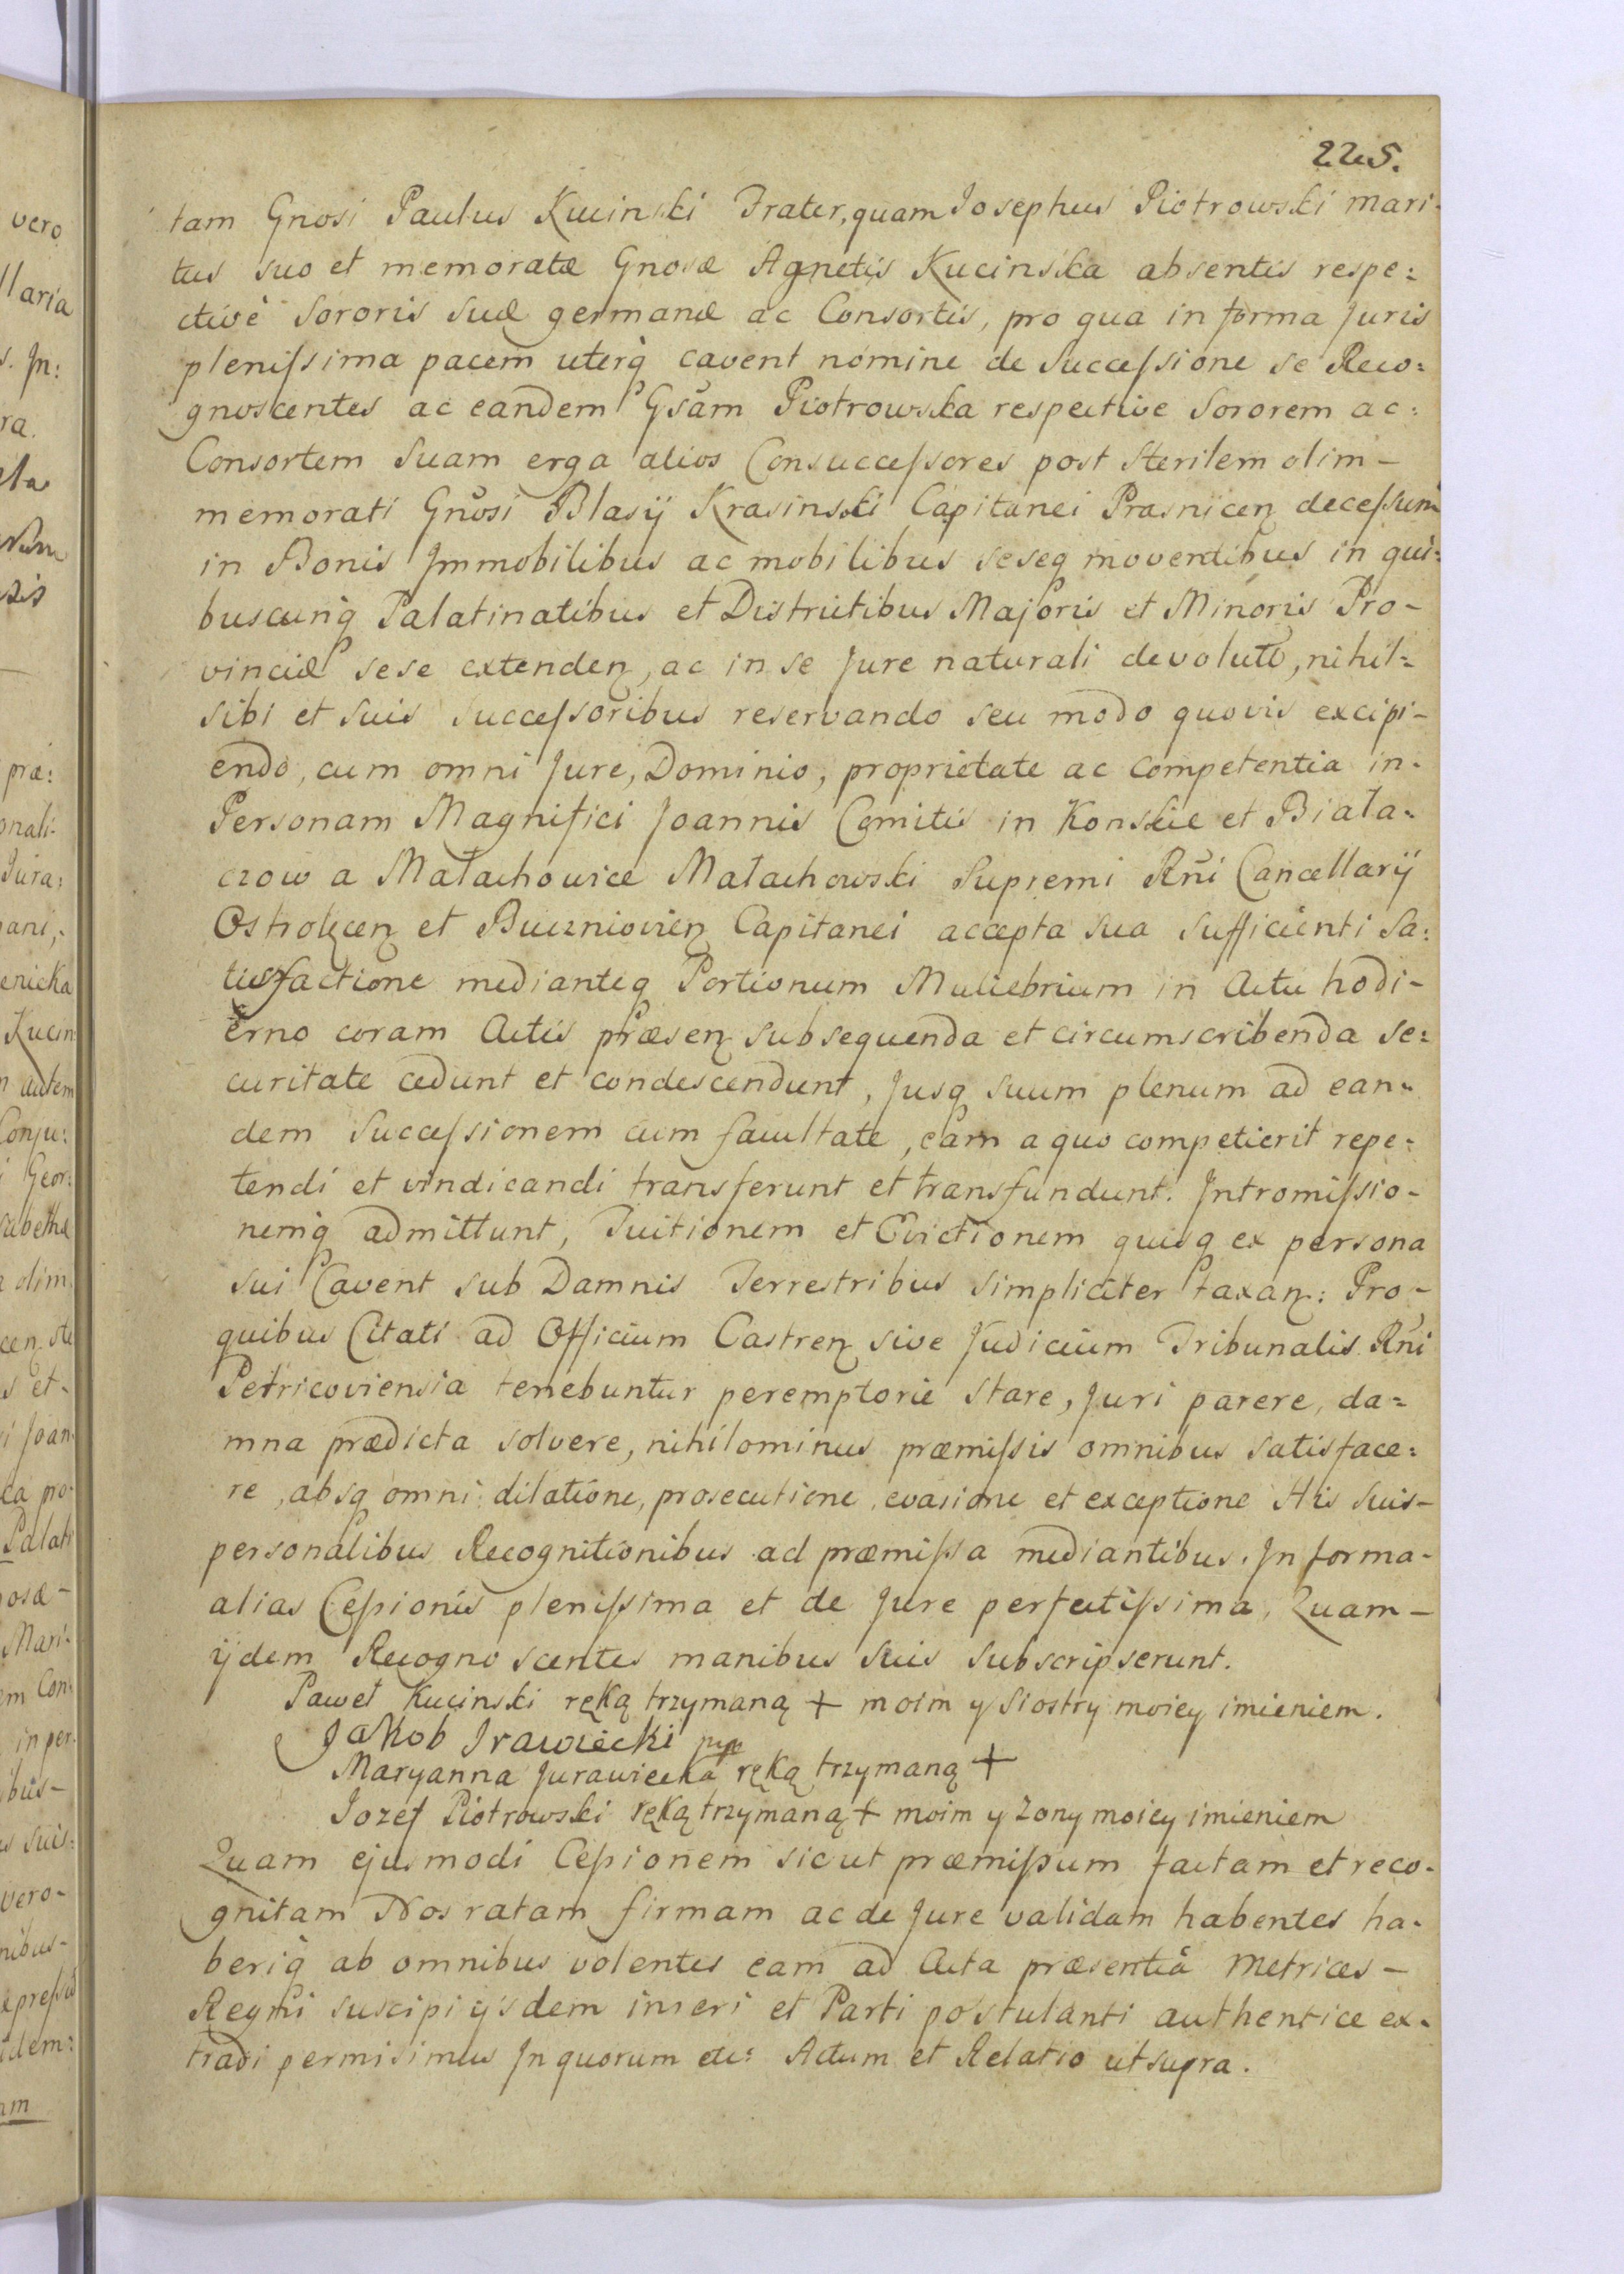 225.
tam Gnosi Paulus Kucinski Frater, quam Josephus Piotrowski mari-
tus suo et memoratæ Gnosæ Agnetis Kucinska absentis respe:
ctivè Sororis suæ germanæ ac Consortis, pro qua in forma Juris
plenissima pacem uterq̀ cavent nomine de successione se Reco:
gnoscentes ac eandem Gsam Piotrowska respective Sororem ac:
Consortem Suam erga alios Consuccessores post Sterilem olim-
memorati Gnosi Blasij Krasinski Capitanei Prasnicen̨ decessum
in Bonis Immobilibus ac mobilibus seseq moventibus in qui:
buscunq̀ Palatinatibus et Districtibus Majoris et Minoris Pro-
vinciæ sese extenden̨, ac in se Jure naturali devoluto, nihil=
sibi et suis successoribus reservando seu modo quovis excipi-
endo, cum omni Jure, Dominio, proprietate ac competentia in-
Personam Magnifici Joannis Comitis in Konskie et Biała-
czow a Małachowice Małachowski Supremi Rni Cancellarij
Ostrołęcen̨ et Buczniovien̨ Capitanei accepta sua sufficienti Sa:
tisfactione medianteq Portionum Muliebrium in Actu hodi-
erno coram Actis præsen̨ subsequenda et circumscribenda se:
curitate cedunt et condescendunt, Jusq suum plenum ad ean-
dem Successionem cum facultate, eam a quo competierit repe-
tendi et vindicandi transferunt et transfundunt. Intromissio-
nemq̀ admittunt, Tuitionem et Evictionem quisq ex persona
sui Cavent sub Damnis Terrestribus simpliciter taxan̨: Pro-
quibus Citati ad Officium Castren̨ sive Judicium Tribunalis Rni
Petricoviensia tenebuntur peremptorie Stare, Juri parere, da=
mna prædicta solvere, nihilominus præmissis omnibus satisface:
re, absq omni dilatione, prosecutione, evasione et exceptione His suis-
personalibus Recognitionibus ad præmissa mediantibus. In forma-
alias Cessionis plenissima et de Jure perfectissima, Quam-
ijdem Recognoscentes manibus suis subscripserunt.
Paweł Kucinski ręką trzymaną + moim y Siostry moiey imieniem.
Jakob Jrawiecki mp
Maryanna Jurawiecka ręką trzymaną +
Jozef Piotrowski ręką trzymaną + moim y zony moiey imieniem
Quam ejusmodi Cessionem sicut præmissum factam et reco-
gnitam Nos ratam firmam ac de Jure validam habentes ha-
beriq̀ ab omnibus volentes eam ad Acta præsentia Metrices-
Regni suscipi ijsdem inseri et Parti postulanti authentice ex-
tradi permisimus In quorum etc: Actum et Relatio ut supra.